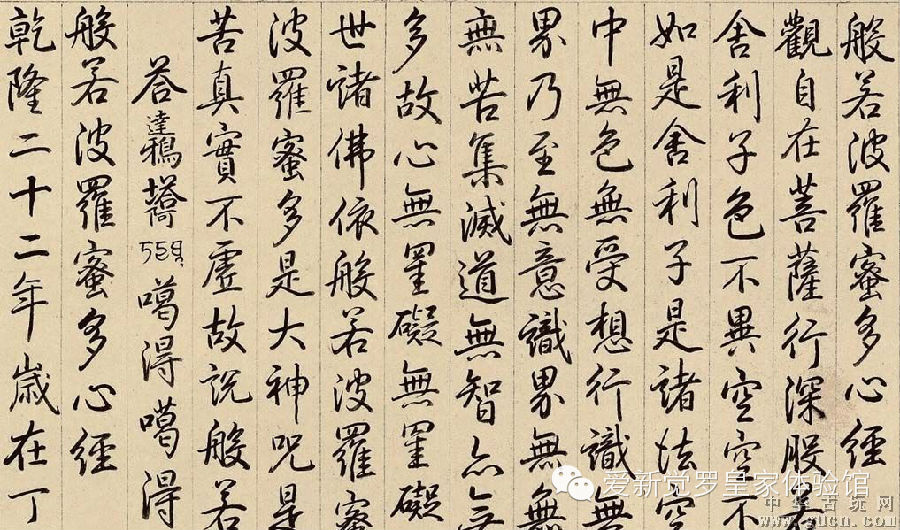 般若波羅蜜多心經
觀自在菩薩行深般若
舍利子色不異空空不
如是舍利子是諸法空
中無色無受想行識無
界乃至無意識界無無
無苦集滅道無智亦無
多故心無罣礙無罣礙
世諸佛依般若波羅蜜
波羅蜜多是大神咒是
苦真實不虛故說般若
荅達鴉噶得噶得
般若波羅蜜多心經
乾隆二十二年歲在丁
爱新觉罗皇家体验馆
中华古玩网
www.gucn.com